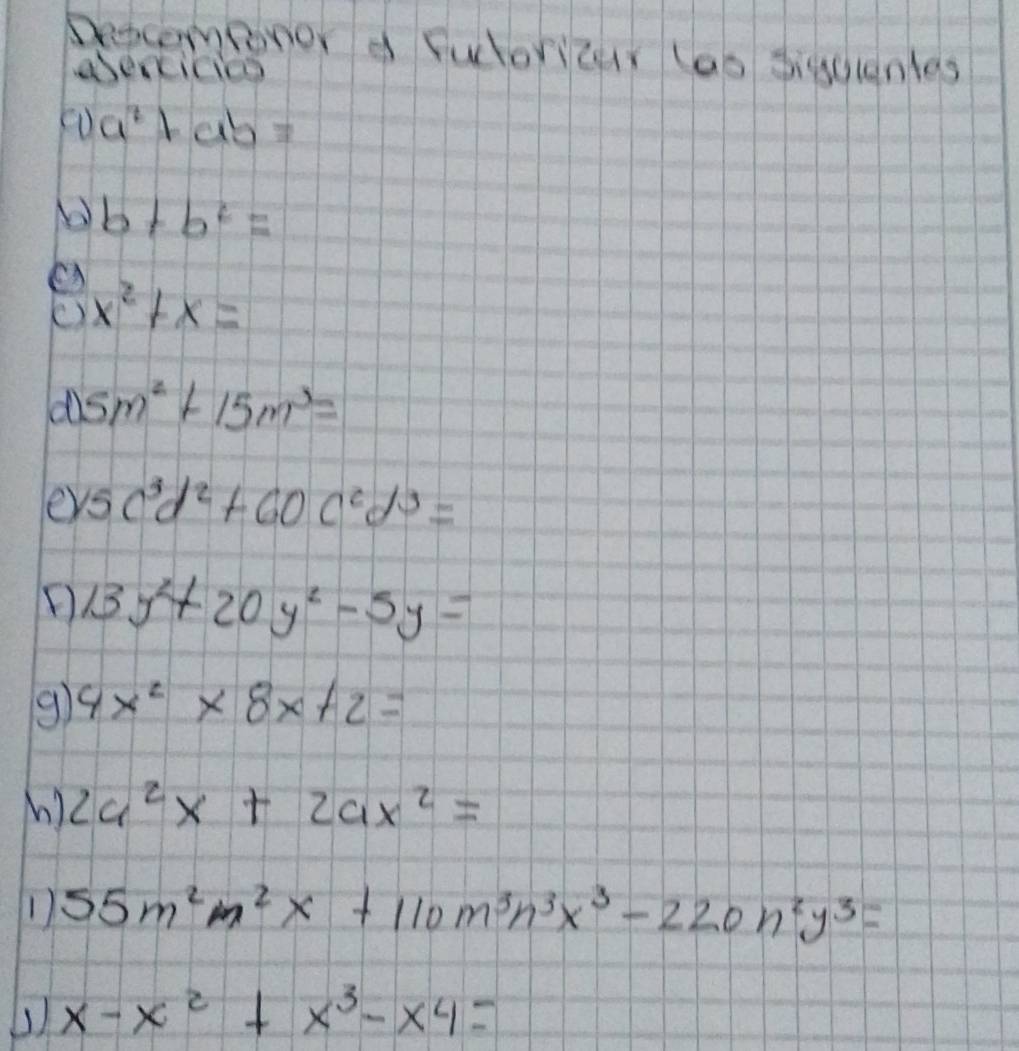 Descomponer o Factorizar las siguientes
ejercicios
a) a² + ab =
b) b + b² =
c)
c) x² + x =
d) 5m² + 15m³ =
e) 5c³d² + 60c²d³ =
f) 13y² + 20y² - 5y =
g) 4x² × 8x + 2 =
h) 2a²x + 2ax² =
i) 55m²m²x + 110m³n³x³ - 220n²y³ =
j) x - x² + x³ - x4 =